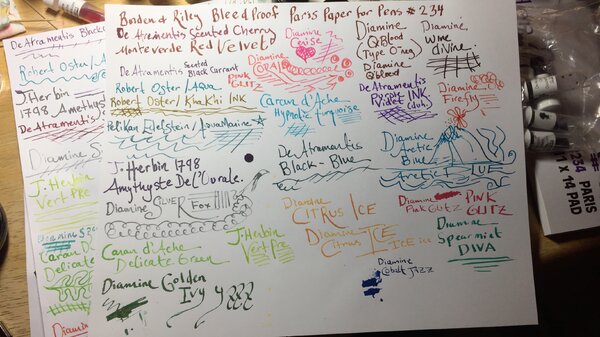 Borden & Riley BleedProof Paris Paper for Pens # 234
De Atramentis Scented Cherry
Monteverde Red Velvet
De Atramentis Scented Black Currant
Robert Oster/Aqua
Robert Oster/Khakhi INK
Pelikan Edelstein/AquaMarine
J. Herbin 1798
Amythyste De L'Ourale.
Diamine SILVER FOX
Caran d'Ache
Delicate Green
J. Herbin
Vert Pre
Diamine Golden
Ivy
Diamine
Cerise
Diamine
CORAL
PINK
GLITZ
Caran d'Ache
Hypnotic turquoise
De Atramentis
Black-Blue
Diamine
CITRUS ICE
Diamine
Citrus ICE
ICE ice
Diamine
Cobalt JAZZ
Diamine
QBlood
(Type O neg)
Diamine
QBlood
Diamine
wine
divine.
De Atramentis
Violet INK
Diamine
Firefly
Diamine
Arctic
Blue
Arctic BLUE
Diamine
Pink GLITZ
PINK
GLITZ
Diamine
Spearmint
DIVA
De Atramentis Black
Robert Oster/
Robert Oster/
J. Herbin
1798 Amethyst
De Atramentis
Diamine
J. Herbin
Vert Pre
Diamine
Caran D
Delicate
Diamine
234 PARIS
11 X 14 PAD